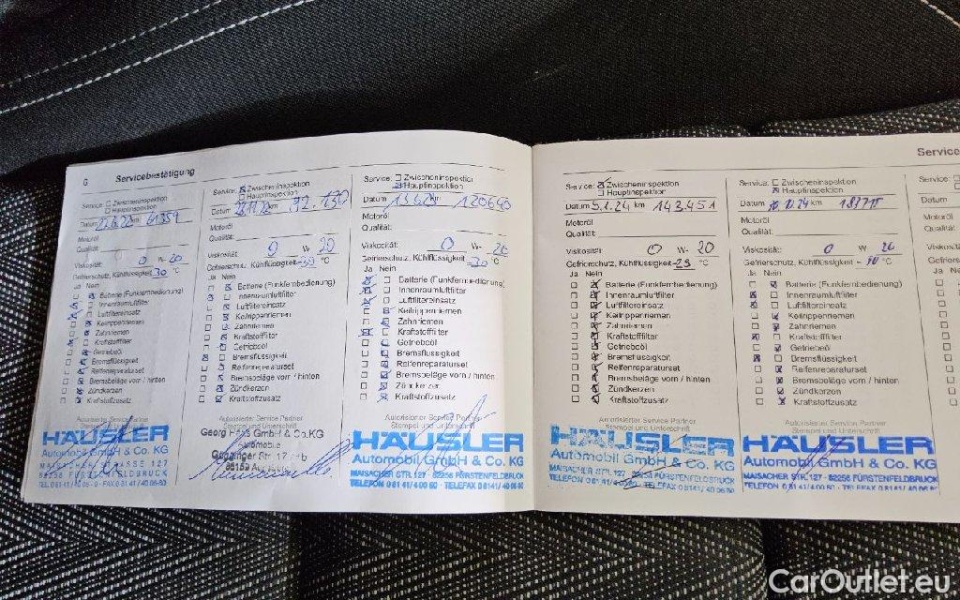 6 Servicebestätigung
Service: Zwischeninspektion
Hauptinspektion
Datum km
Motoröl
Qualität:
Viskosität: 0 W- 20
Gefrierschutz, Kühlflüssigkeit -30 °C
Ja Nein
Batterie (Funkfernbedienung)
Innenraumluftfilter
Luftfiltereinsatz
Keilrippenriemen
Zahnriemen
Kraftstofffilter
Getriebeöl
Bremsflüssigkeit
Reifenreparaturset
Bremsbeläge vorn / hinten
Zündkerzen
Kraftstoffzusatz
Autorisierter Service Partner
Stempel und Unterschrift
HÄUSLER
Automobil GmbH & Co. KG
MAISACHER STRASSE 127
82256 FÜRSTENFELDBRUCK
Service: Zwischeninspektion
Hauptinspektion
Datum
Motoröl
Qualität:
Viskosität: 0 W- 20
Gefrierschutz, Kühlflüssigkeit °C
Ja Nein
Batterie (Funkfernbedienung)
Innenraumluftfilter
Luftfiltereinsatz
Keilrippenriemen
Zahnriemen
Kraftstofffilter
Getriebeöl
Bremsflüssigkeit
Reifenreparaturset
Bremsbeläge vorn / hinten
Zündkerzen
Kraftstoffzusatz
Autorisierter Service Partner
Stempel und Unterschrift
Georg GmbH & Co.KG
Automobile
Service: Zwischeninspektion
Hauptinspektion
Datum 120640
Motoröl
Qualität:
Viskosität: 0 W- 20
Gefrierschutz, Kühlflüssigkeit -30 °C
Ja Nein
Batterie (Funkfernbedienung)
Innenraumluftfilter
Luftfiltereinsatz
Keilrippenriemen
Zahnriemen
Kraftstofffilter
Getriebeöl
Bremsflüssigkeit
Reifenreparaturset
Bremsbeläge vorn / hinten
Zündkerzen
Kraftstoffzusatz
Autorisierter Service Partner
Stempel und Unterschrift
HÄUSLER
Automobil GmbH & Co. KG
MAISACHER STR. 127 · 82256 FÜRSTENFELDBRUCK
TELEFON 0 81 41 / 4 00 60 - TELEFAX 0 81 41 / 40 06 60
Service
Service: Zwischeninspektion
Hauptinspektion
Datum 5.1.24 km 143451
Motoröl
Qualität:
Viskosität: 0 W- 20
Gefrierschutz, Kühlflüssigkeit -29 °C
Ja Nein
Batterie (Funkfernbedienung)
Innenraumluftfilter
Luftfiltereinsatz
Keilrippenriemen
Zahnriemen
Kraftstofffilter
Getriebeöl
Bremsflüssigkeit
Reifenreparaturset
Bremsbeläge vorn / hinten
Zündkerzen
Kraftstoffzusatz
Autorisierter Service Partner
Stempel und Unterschrift
HÄUSLER
Automobil GmbH & Co. KG
MAISACHER STR. 127 · 82256 FÜRSTENFELDBRUCK
TELEFON 0 81 41 / 4 00 60 - TELEFAX 0 81 41 / 40 06 60
Service: Zwischeninspektion
Hauptinspektion
Datum km
Motoröl
Qualität:
Viskosität: 0 W- 20
Gefrierschutz, Kühlflüssigkeit °C
Ja Nein
Batterie (Funkfernbedienung)
Innenraumluftfilter
Luftfiltereinsatz
Keilrippenriemen
Zahnriemen
Kraftstofffilter
Getriebeöl
Bremsflüssigkeit
Reifenreparaturset
Bremsbeläge vorn / hinten
Zündkerzen
Kraftstoffzusatz
Autorisierter Service Partner
Stempel und Unterschrift
HÄUSLER
Automobil GmbH & Co. KG
MAISACHER STR. 127 - 82256 FÜRSTENFELDBRUCK
TELEFON 0 81 41 / 4 00 60 - TELEFAX 0 81 41 / 40 06 60
Service:
Datum
Motoröl
Qualität
Viskosität
Gefriers
Ja Nein
CarOutlet.eu